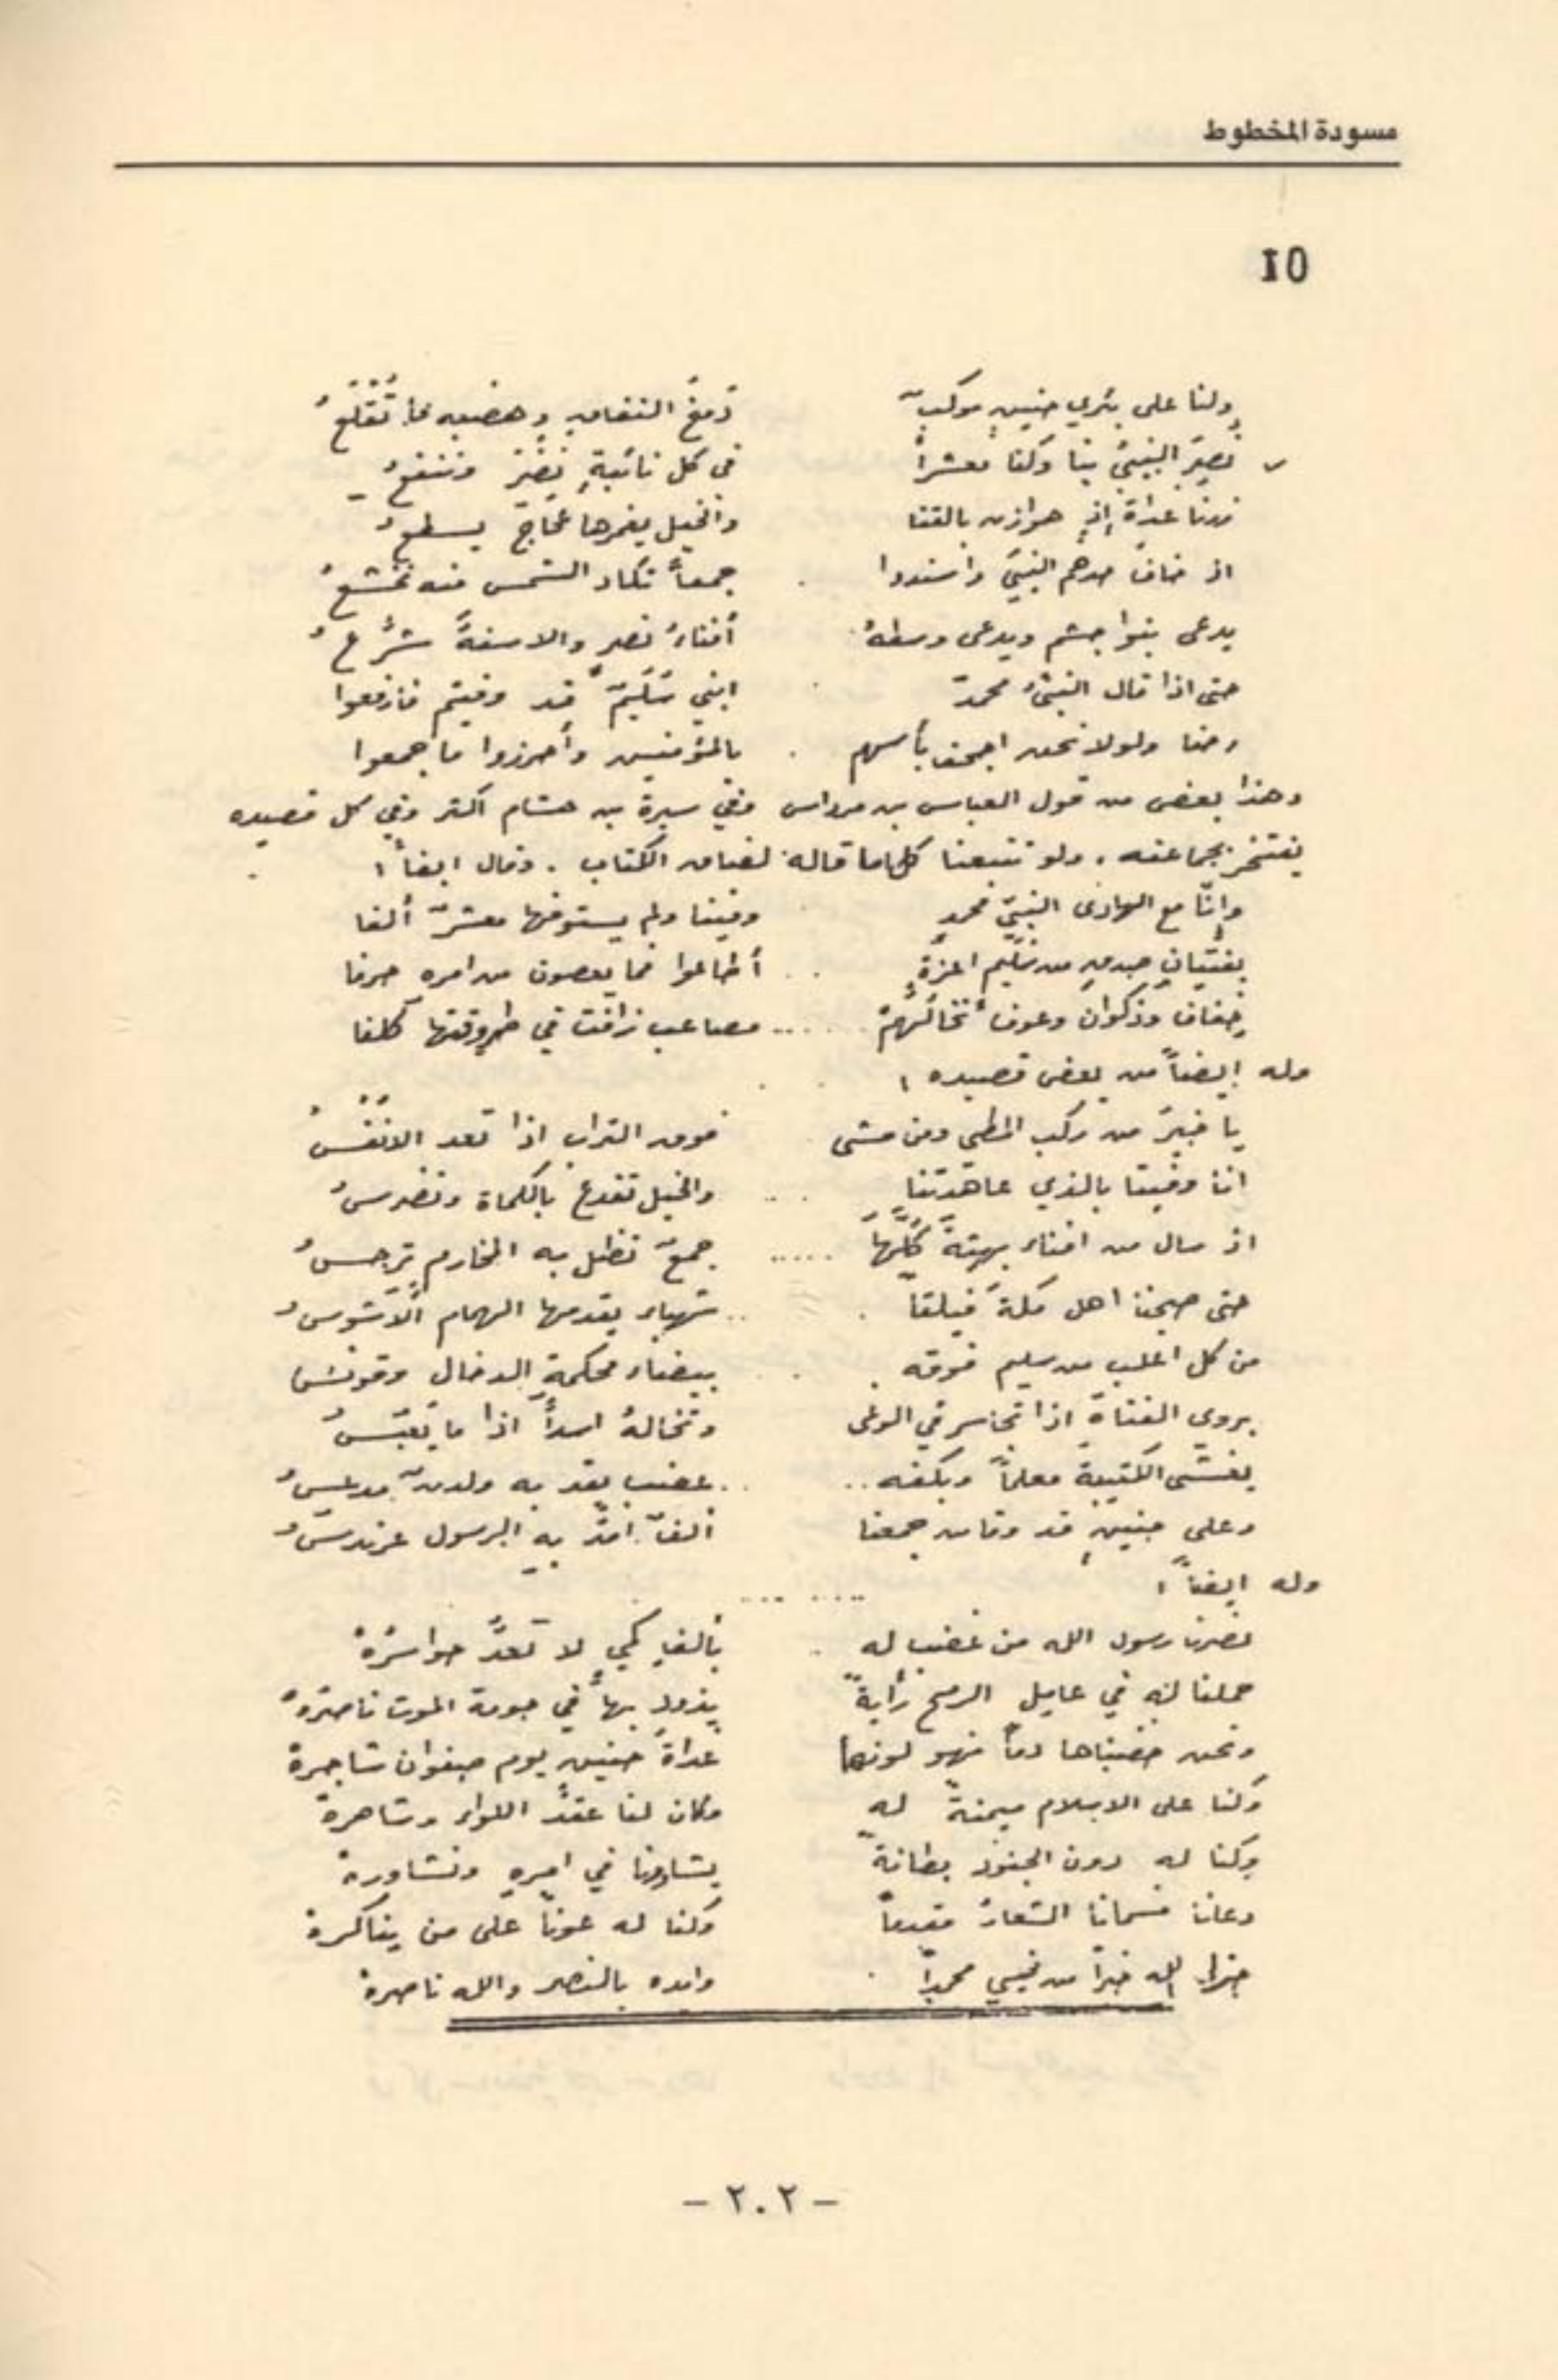 مسودة المخطوط
10
ولنا على بئري حنين موكب دمغ النفاق وهضبه ما تقلع
نصر النبي بنا وكنا معشراً في كل نائبةٍ نضر وننفع
ذدنا غداة إذٍ هوازن بالقنا والخيل يغمرها عجاج يسطع
اذ خاف حدهم النبي واسندوا جمعاً تكاد الشمس منه تخشع
يدعى بنوا جشم ويدعى وسطه أفناء نصرٍ والاسنة شرع
حتى اذا قال النبي محمد ابني سليم قد وفيتم فارفعوا
رحنا ولولا نحن اجحف بأسهم بالمؤمنين وأحرزوا ما جمعوا
وهذا بعض من قول العباس بن مرداس وفي سيرة بن هشام اكثر وفي كل قصيده
يفتخر بجماعته . ولو تتبعنا كلما قاله لضاق الكتاب . وقال ايضاً ؛
وإنا مع الهادى النبي محمدٍ وفينا ولم يستوفها معشر ألفا
بفتيان صدقٍ من سليم اعزةٍ أطاعوا فما يعصون من امره حرفا
خفاف وذكوان وعوف تخالهم مصاعب زافت في طروقتها كلفا
وله ايضاً من بعض قصيده ؛
يا خير من ركب المطي ومن مشى فوق التراب اذا تعد الانفس
انا وفينا بالذي عاهدتنا والخيل تقدع بالكماة وتضرس
اذ سال من افناء بهثة كلها جمع تظل به المخارم ترجس
حتى صبحنا اهل مكة فيلقاً شهباء يقدمها الهمام الأشوس
من كل اغلب من سليم فوقه بيضاء محكمة الدخال وقونس
يروى القناة اذا تجاسر في الوغى وتخاله اسداً اذا ما يعبس
يغشى الكتيبة معلماً وبكفه عضب يقد به ولدن مدعس
وعلى حنينٍ قد وفا من جمعنا ألف امد به الرسول عرندس
وله ايضاً ؛
نصرنا رسول الله من غضب له بألف كمي لا تعد حواسره
حملنا له في عامل الرمح رايةً يذود بها في حومة الموت ناصره
ونحن خضبناها دماً فهو لونها غداة حنين يوم صفوان شاجره
وكنا على الاسلام ميمنة له وكان لنا عقد اللواء وشاهره
وكنا له دون الجنود بطانة يشاورنا في امره ونشاوره
دعانا فسمانا الشعار مقدماً وكنا له عوناً على من يناكره
جزا الله خيراً من نبي محمداً وامده بالنصر والله ناصره
- ٢٠٢ -